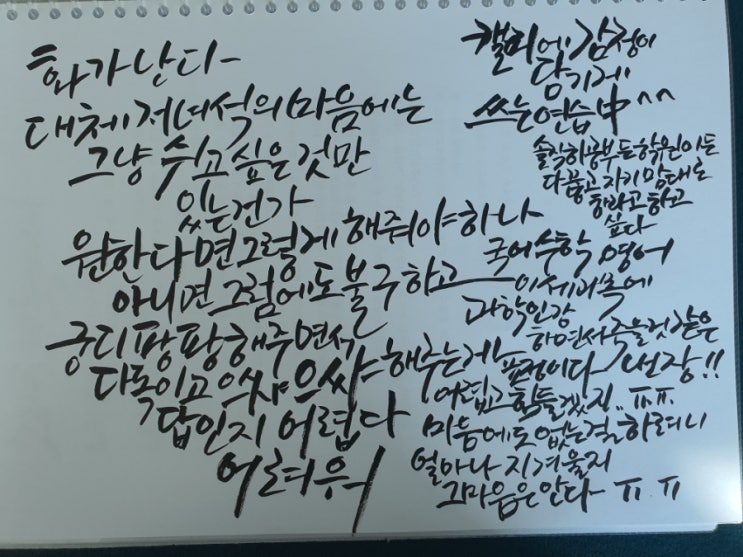 화가 난다-
대체 저녀석의 마음에는
그냥 쉬고 싶은 것만
있는건가
원한다면 그렇게 해줘야 하나
아니면 그럼에도 불구하고
궁디팡팡 해주면서
다독이고 으쌰으쌰 해주는게
답인지 어렵다
어려워
캘리에 감정이
담기게
쓰는 연습 中 ^^
솔직히 공부든 학원이든
다 끊고 자기 맘대로
하라고 하고
싶다
국어 수학 영어
이제 과목에
과학 인강
하면서 죽을것 같은
표정이다 젠장!!
어렵고 힘들겠지.. ㅠㅠ
마음에도 없는걸 하려니
얼마나 지겨울지
그마음은 안다- ㅠ ㅠ